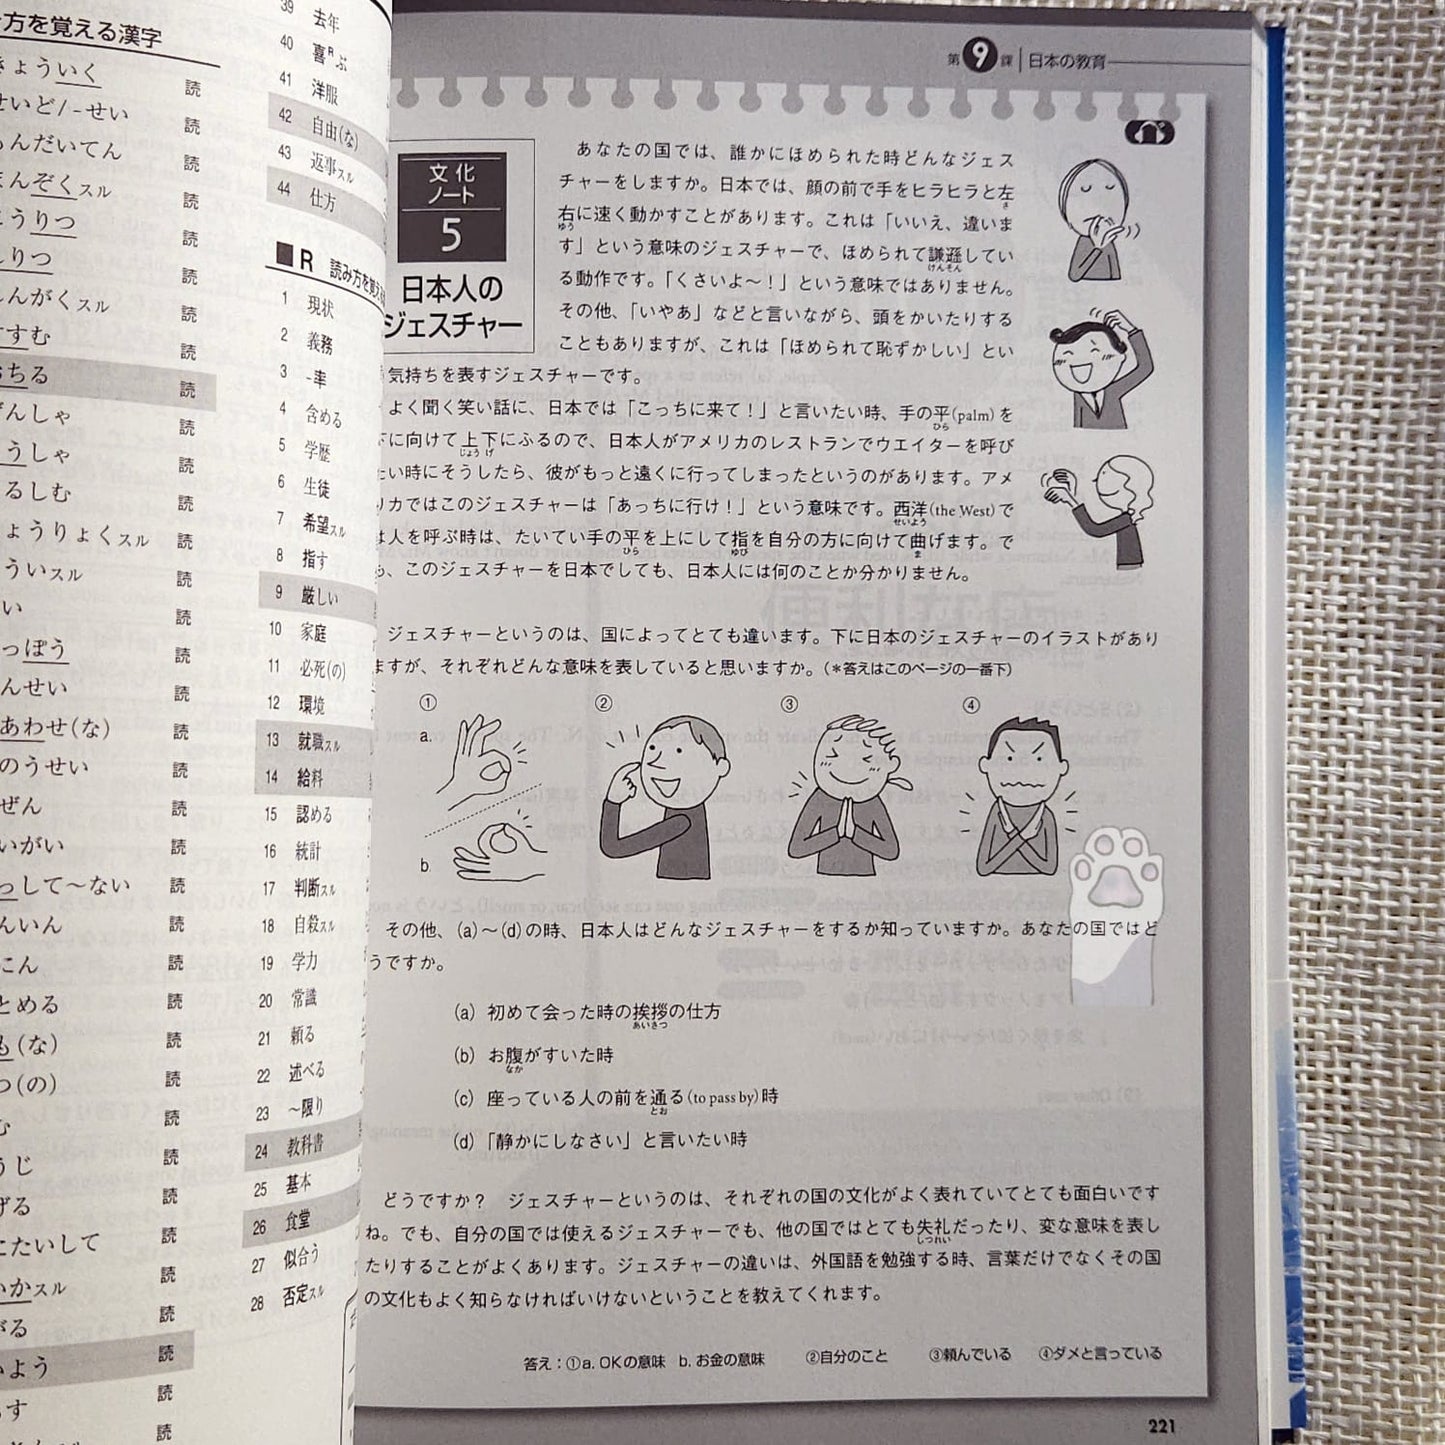 方を覚える漢字
きょういく 読
せいど/-せい 読
んだいてん 読
まんぞくスル 読
こうりつ 読
しりつ 読
んがくスル 読
すすむ 読
おちる 読
げんしゃ 読
うしゃ 読
るしむ 読
ょうりょくスル 読
ういスル 読
い 読
っぽう 読
んせい 読
あわせ(な) 読
のうせい 読
ぜん 読
いがい 読
っして～ない 読
んいん 読
にん 読
とめる 読
も(な) 読
つ(の) 読
む 読
うじ 読
げる 読
こたいして 読
いかスル 読
がる 読
いよう 読
らす 読
39 去年
40 喜ᴿぶ
41 洋服
42 自由(な)
43 返事スル
44 仕方
■R 読み方を覚え
1 現状
2 義務
3 -率
4 含める
5 学歴
6 生徒
7 希望スル
8 指す
9 厳しい
10 家庭
11 必死(の)
12 環境
13 就職スル
14 給料
15 認める
16 統計
17 判断スル
18 自殺スル
19 学力
20 常識
21 頼る
22 述べる
23 ～限り
24 教科書
25 基本
26 食堂
27 似合う
28 否定スル
第9課 日本の教育
文化
ノート
5
日本人の
ジェスチャー
あなたの国では、誰かにほめられた時どんなジェス
チャーをしますか。日本では、顔の前で手をヒラヒラと左
さ
右に速く動かすことがあります。これは「いいえ、違いま
ゆう
す」という意味のジェスチャーで、ほめられて謙遜してい
けんそん
る動作です。「くさいよ～！」という意味ではありません。
その他、「いやあ」などと言いながら、頭をかいたりする
こともありますが、これは「ほめられて恥ずかしい」とい
気持ちを表すジェスチャーです。
よく聞く笑い話に、日本では「こっちに来て！」と言いたい時、手の平(palm)を
ひら
下に向けて上下にふるので、日本人がアメリカのレストランでウエイターを呼び
じょう げ
たい時にそうしたら、彼がもっと遠くに行ってしまったというのがあります。アメ
リカではこのジェスチャーは「あっちに行け！」という意味です。西洋(the West)で
せいよう
は人を呼ぶ時は、たいてい手の平を上にして指を自分の方に向けて曲げます。で
ひら ゆび ま
も、このジェスチャーを日本でしても、日本人には何のことか分かりません。
ジェスチャーというのは、国によってとても違います。下に日本のジェスチャーのイラストがあり
ますが、それぞれどんな意味を表していると思いますか。(＊答えはこのページの一番下)
① ② ③ ④
a.
b.
その他、(a)～(d)の時、日本人はどんなジェスチャーをするか知っていますか。あなたの国ではど
うですか。
(a) 初めて会った時の挨拶の仕方
あいさつ
(b) お腹がすいた時
なか
(c) 座っている人の前を通る(to pass by)時
とお
(d)「静かにしなさい」と言いたい時
どうですか？ ジェスチャーというのは、それぞれの国の文化がよく表れていてとても面白いです
ね。でも、自分の国では使えるジェスチャーでも、他の国ではとても失礼だったり、変な意味を表し
しつれい
たりすることがよくあります。ジェスチャーの違いは、外国語を勉強する時、言葉だけでなくその国
の文化もよく知らなければいけないということを教えてくれます。
答え：①a. OKの意味 b. お金の意味 ②自分のこと ③頼んでいる ④ダメと言っている
221